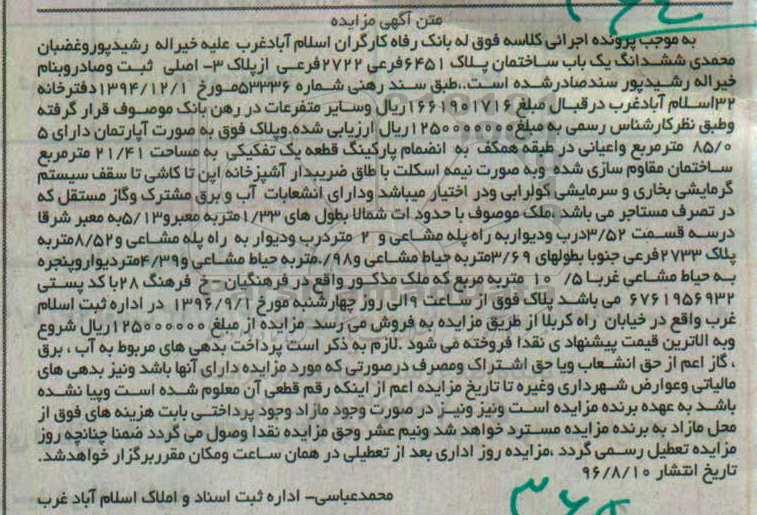 متن آگهی مزایده
به موجب پرونده اجرائی کلاسه فوق له بانک رفاه کارگران اسلام آبادغرب علیه خیراله رشیدپوروغضبان
محمدی ششدانگ یک باب ساختمان پلاک ۶۴۵۱فرعی ۲۷۲۲فرعی ازپلاک ۳- اصلی ثبت وصادروبنام
خیراله رشیدپور سندصادرشده است..طبق سند رهنی شماره ۵۳۳۳۶مورخ ۱۳۹۴/۱۲/۱دفترخانه
۳۲اسلام آبادغرب درقبال مبلغ ۱۶۶۱۹۰۱۷۱۶ریال وسایر متفرعات در رهن بانک موصوف قرار گرفته
وطبق نظرکارشناس رسمی به مبلغ۱۲۵۰۰۰۰۰۰۰ریال ارزیابی شده.وپلاک فوق به صورت آپارتمان دارای ۵
۸۵/۰ مترمربع واعیانی در طبقه همکف به انضمام پارکینگ قطعه یک تفکیکی به مساحت ۲۱/۴۱ مترمربع
ساختمان مقاوم سازی شده وبه صورت نیمه اسکلت با طاق ضریبدار آشپزخانه اپن تا کاشی تا سقف سیستم
گرمایشی بخاری و سرمایشی کولرابی ودر اختیار میباشد ودارای انشعابات آب و برق مشترک وگاز مستقل که
در تصرف مستاجر می باشد .ملک موصوف با حدود ات شمالا بطول های ۱/۳۳متربه معبرو۵/۱۳به معبر شرقا
درسه قسمت ۳/۵۲درب ودیواربه راه پله مشاعی و ۲ متردرب ودیوار به راه پله مشاعی و۸/۵۲متربه
پلاک ۲۷۳۳فرعی جنوبا بطولهای ۳/۶۹متربه حیاط مشاعی و۹۸/.متربه حیاط مشاعی و۴/۳۹متردیواروپنجره
به حیاط مشاعی غربا ۵/ ۱۰ متربه مربع که ملک مذکور واقع در فرهنگیان -خ فرهنگ ۲۸با کد پستی
۶۷۶۱۹۵۶۹۳۲ می باشد پلاک فوق از ساعت ۹الی روز چهارشنبه مورخ ۱۳۹۶/۹/۱ در اداره ثبت اسلام
غرب واقع در خیابان راه کربلا از طریق مزایده به فروش می رسد مزایده از مبلغ ۱۲۵۰۰۰۰۰۰۰ریال شروع
وبه الاترین قیمت پیشنهاد ی نقدا فروخته می شود .لازم به ذکر است پرداخت بدهی های مربوط به آب ، برق
، گاز اعم از حق انشعاب ویا حق اشتراک ومصرف درصورتی که مورد مزایده دارای آنها باشد ونیز بدهی های
مالیاتی وعوارض شهرداری وغیره تا تاریخ مزایده اعم از اینکه رقم قطعی آن معلوم شده است وپیا نشده
باشد به عهده برنده مزایده است ونیز ونیز در صورت وجود مازاد وجود پرداختی بابت هزینه های فوق از
محل مازاد به برنده مزایده مسترد خواهد شد ونیم عشر وحق مزایده نقدا وصول می گردد ضمنا چنانچه روز
مزایده تعطیل رسمی گردد ،مزایده روز اداری بعد از تعطیلی در همان ساعت ومکان مقرربرگزار خواهدشد.
تاریخ انتشار ۹۶/۸/۱۰
محمدعباسی- اداره ثبت اسناد و املاک اسلام آباد غرب